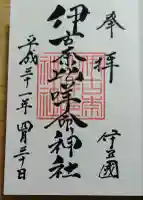 奉拝
伊豆國
伊古奈比咩命神社
平成三十一年四月三十日